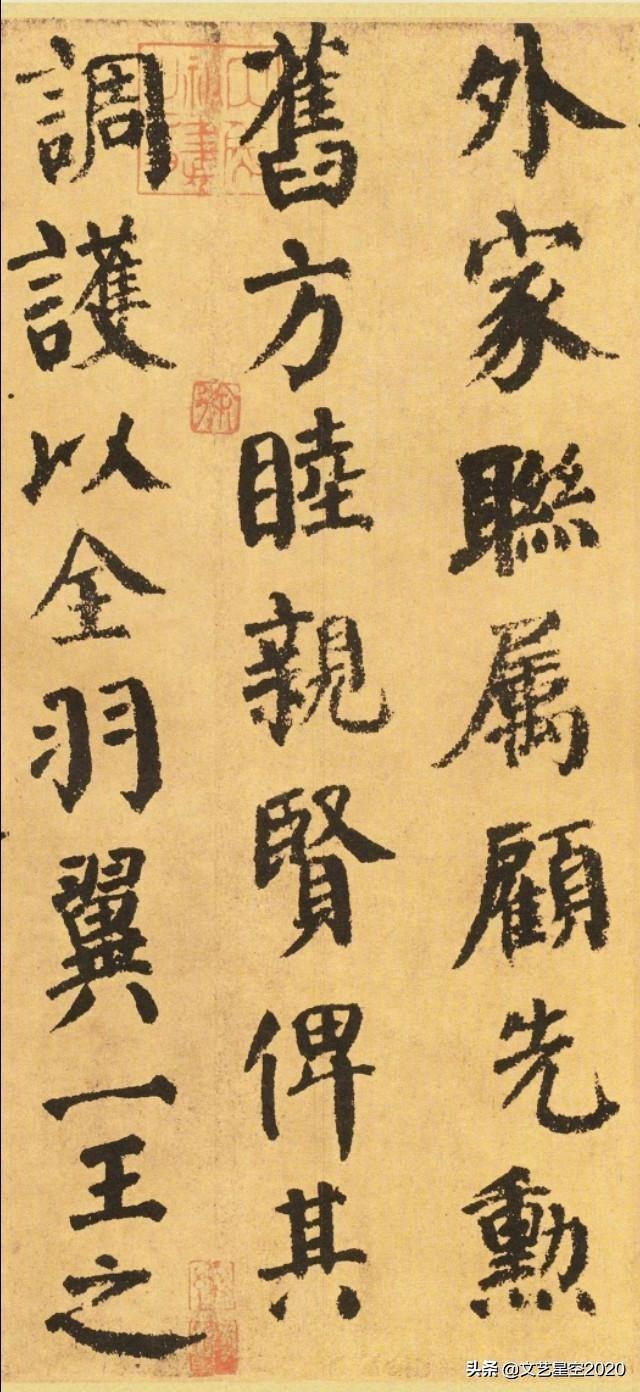 外家聯属顧先勲
舊方睦親賢俾其
調護以全羽翼一王之
头条 @文艺星空2020